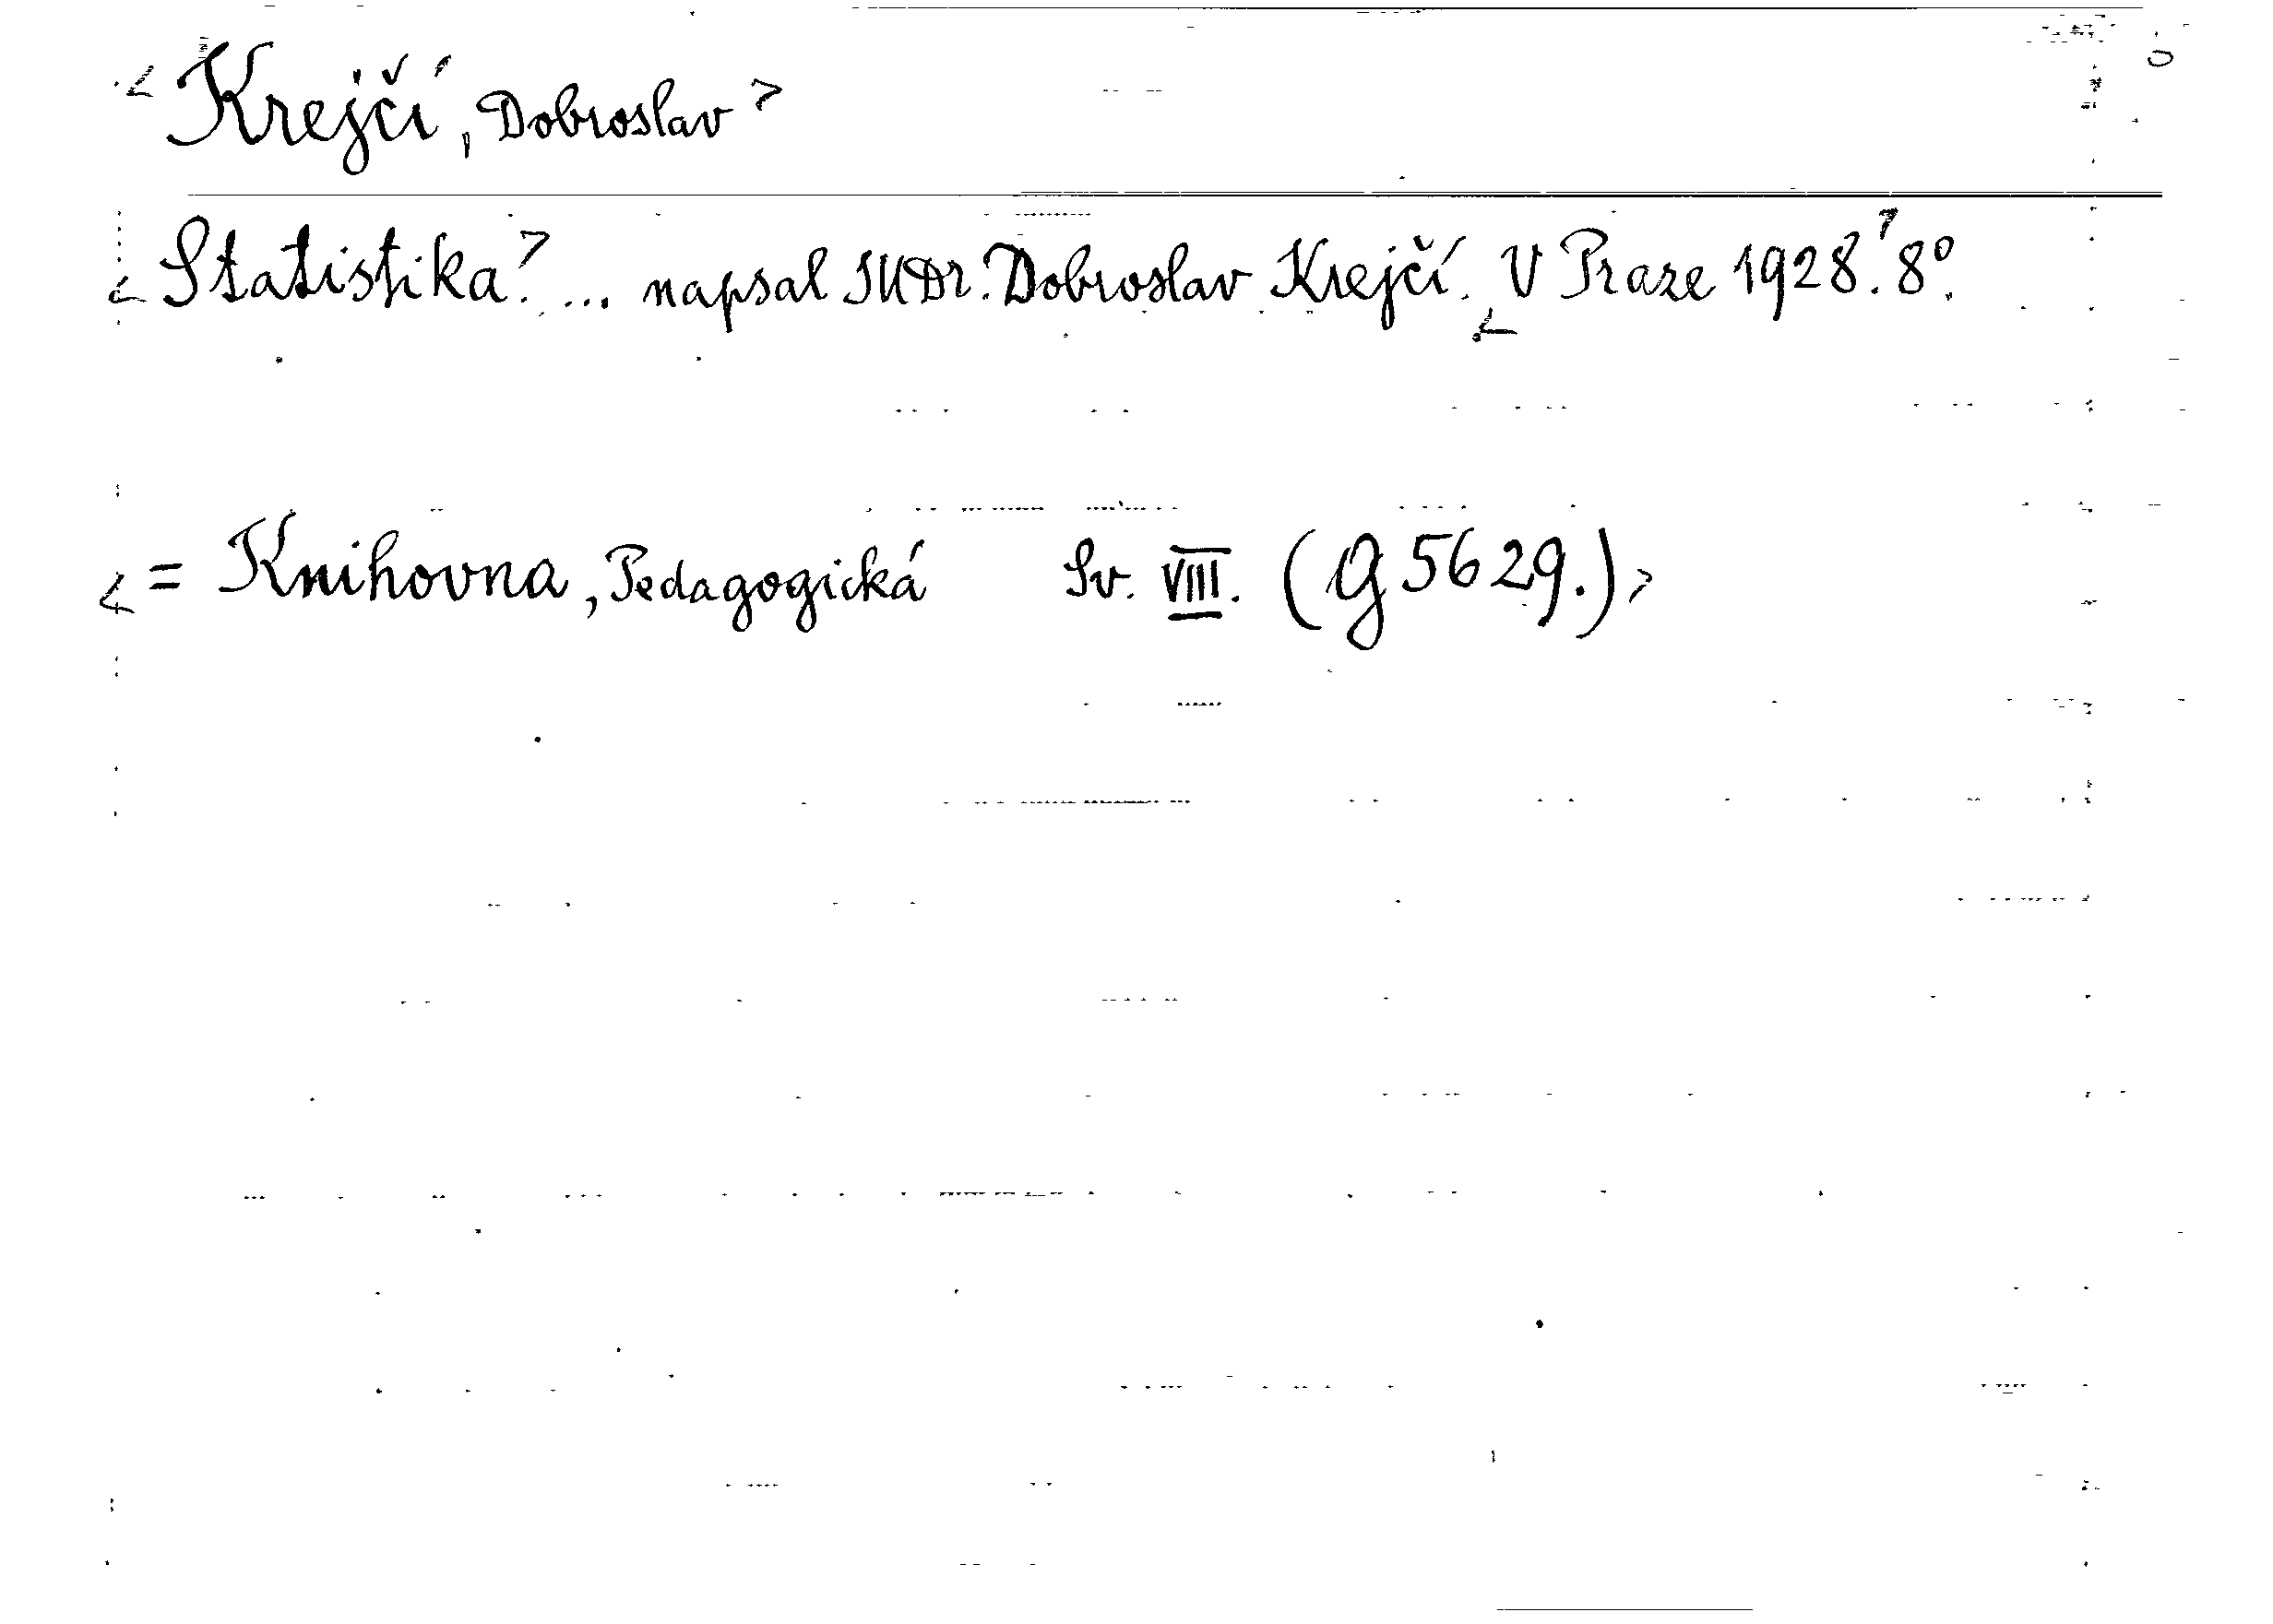 <Krejčí, Dobroslav>
<Statistika.> ... napsal JUDr. Dobroslav Krejčí. <V Praze 1928.> 8°.
<= Knihovna, Pedagogická Sv. VIII. (G 5629.)>